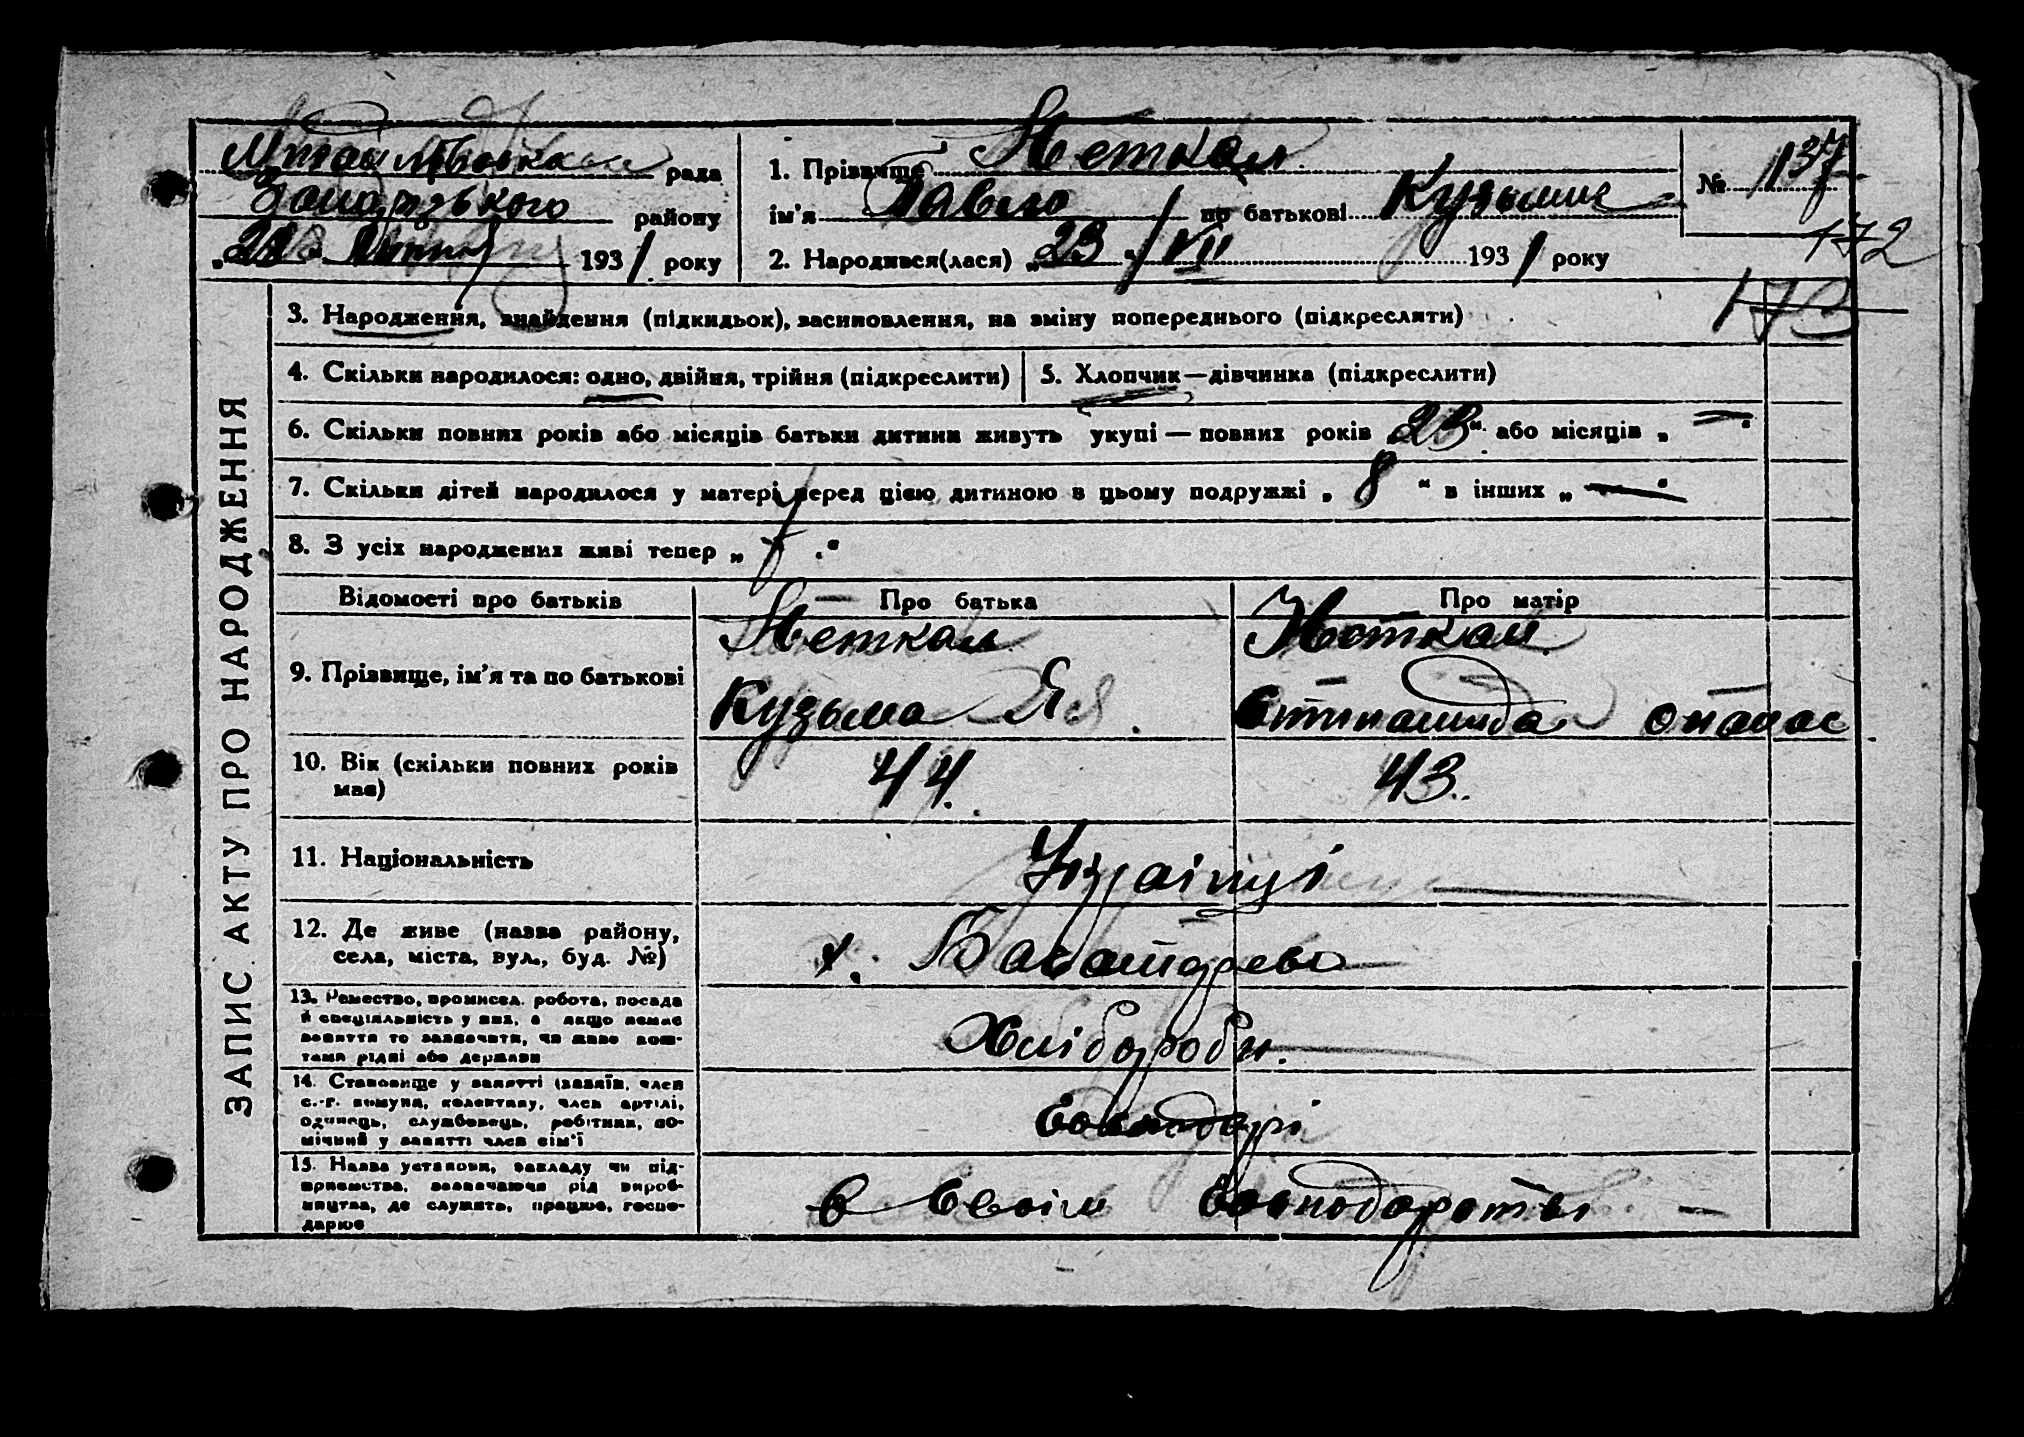 рада
району
193 1 року
1. Прізвище Неткал
ім'я Павло по батькові Кузьмич
2. Народився(лася) „23“ VII 193 1 року
№ 137
172
173
ЗАПИС АКТУ ПРО НАРОДЖЕННЯ
3. Народження, знайдення (підкидьок), засиновлення, на зміну попереднього (підкреслити)
4. Скільки народилося: одно, двійня, трійня (підкреслити)
5. Хлопчик—дівчинка (підкреслити)
6. Скільки повних років або місяців батьки дитини живуть укупі — повних років „23“ або місяців „—“
7. Скільки дітей народилося у матері перед цією дитиною в цьому подружжі „8“ в інших „—“
8. З усіх народжених живі тепер „7“
Відомості про батьків
Про батька
Про матір
9. Прізвище, ім'я та по батькові
Неткал
Кузьма Я
Неткал
опанас
10. Вік (скільки повних років
має)
44.
43.
11. Національність
Українці
12. Де живе (назва району,
села, міста, вул., буд. №)
х.
13. Ремество, промисел, робота, посада
й спеціяльність у них, а якщо немає
заняття то зазначити, чи живе кош-
тами рідні або держави
Хліборобн.
14. Становище у занятті (хазяїн, член
с.-г. комуни, колективу, член артілі,
одинець, службовець, робітник, по-
мічний у занятті член сім'ї
Господарі
15. Назва установи, закладу чи під-
приємства, зазначаючи рід вироб-
ництва, де служить, працює, госпо-
дарює
в Своїм Господарстві